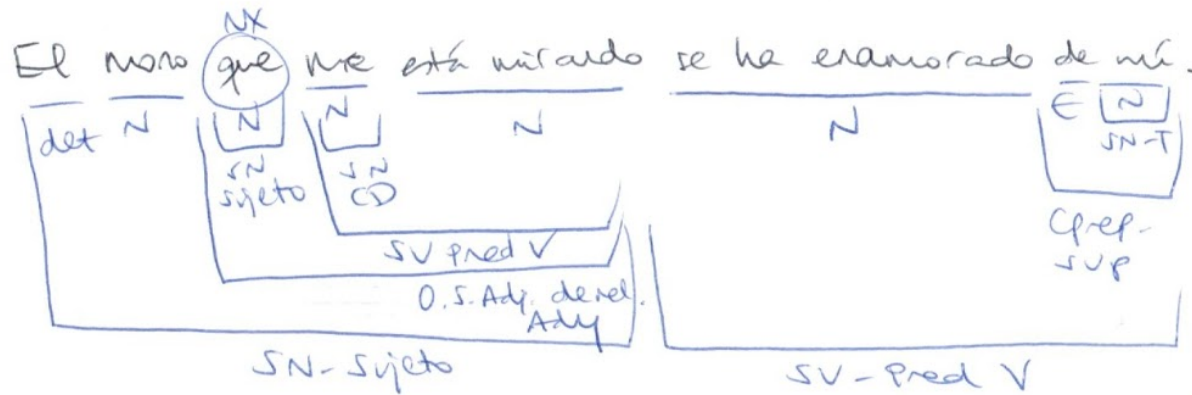 NX
El moro que me está mirando se ha enamorado de mí.
det N N N N N E N
SN SN SN-T
sujeto CD
SV pred V Cprep-
O.S.Adj. de rel. sup
Ady
SN-Sujeto SV-Pred V